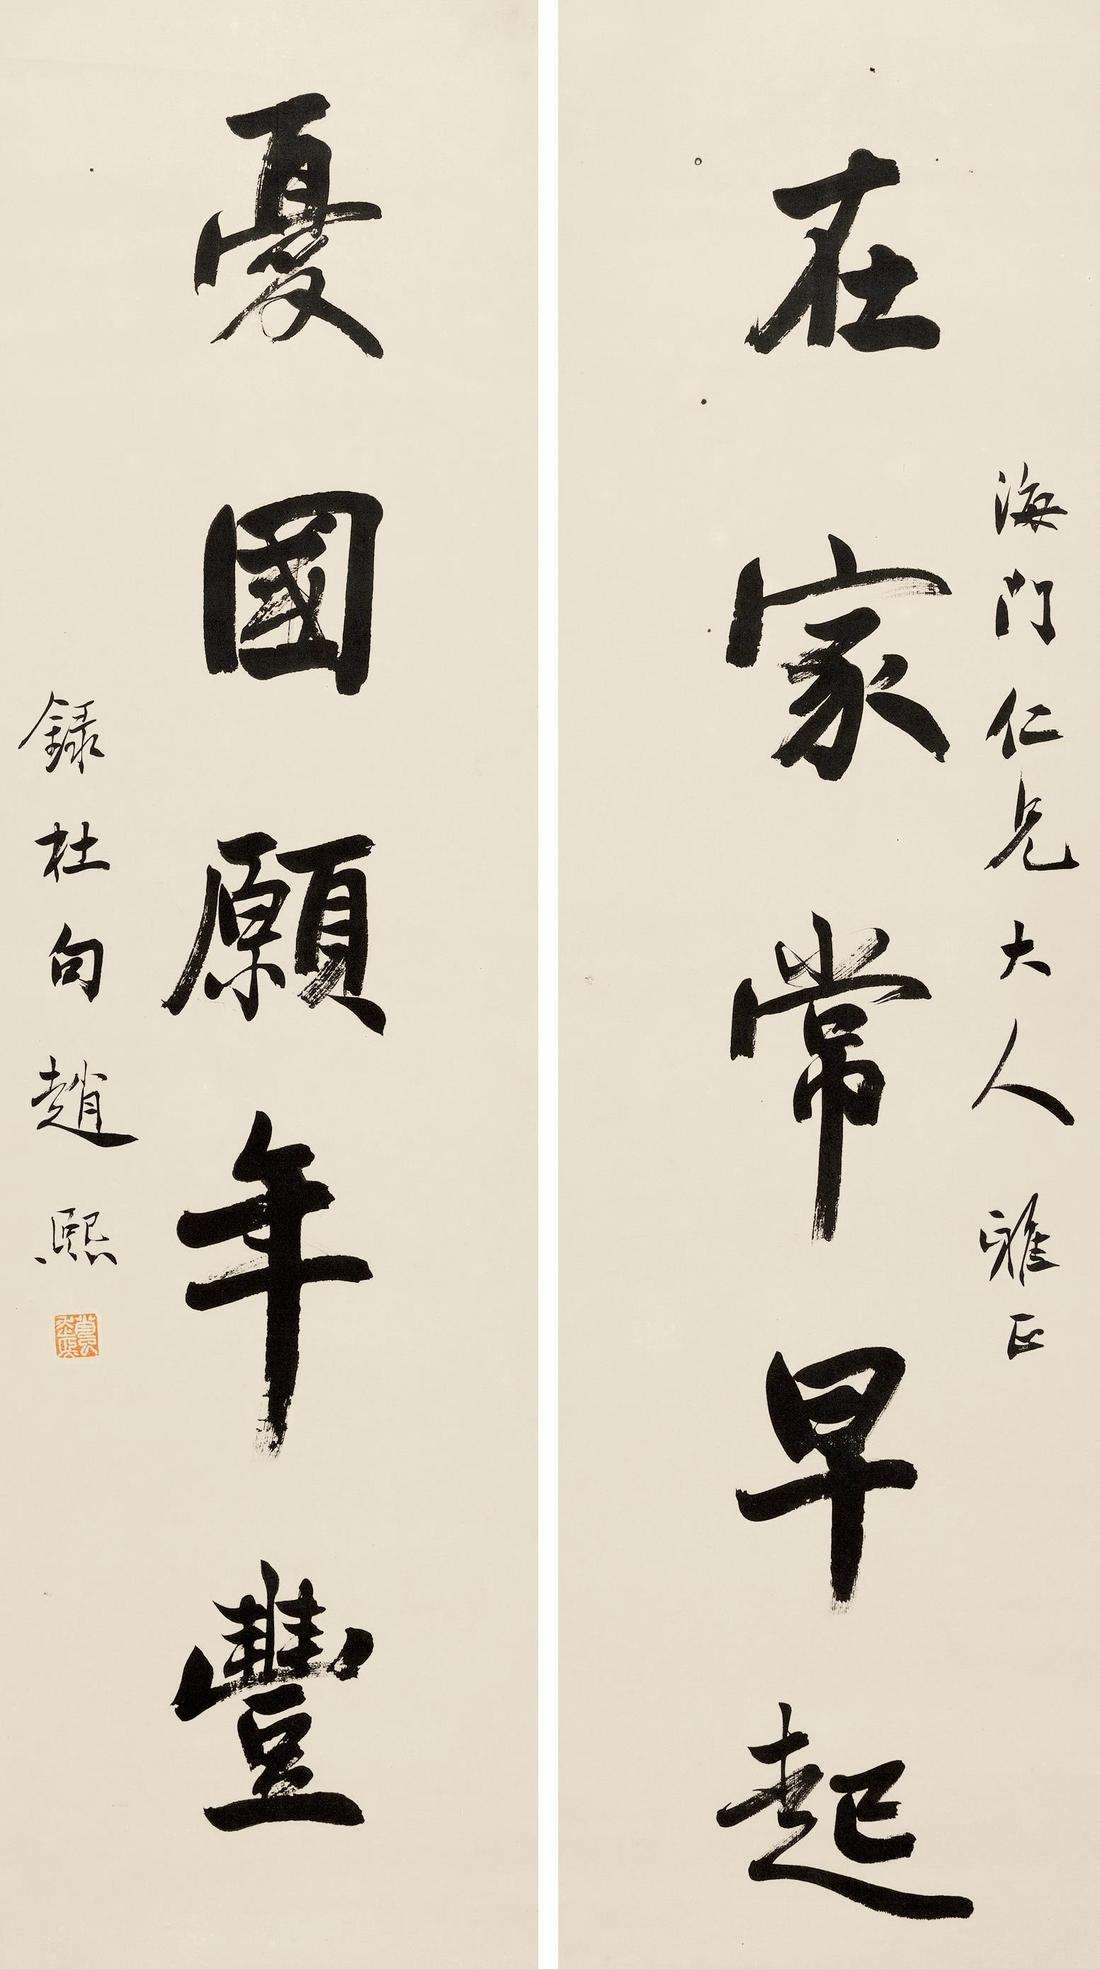 海門仁兄大人雅正
在家常早起
憂國願年豐
録杜句趙熙